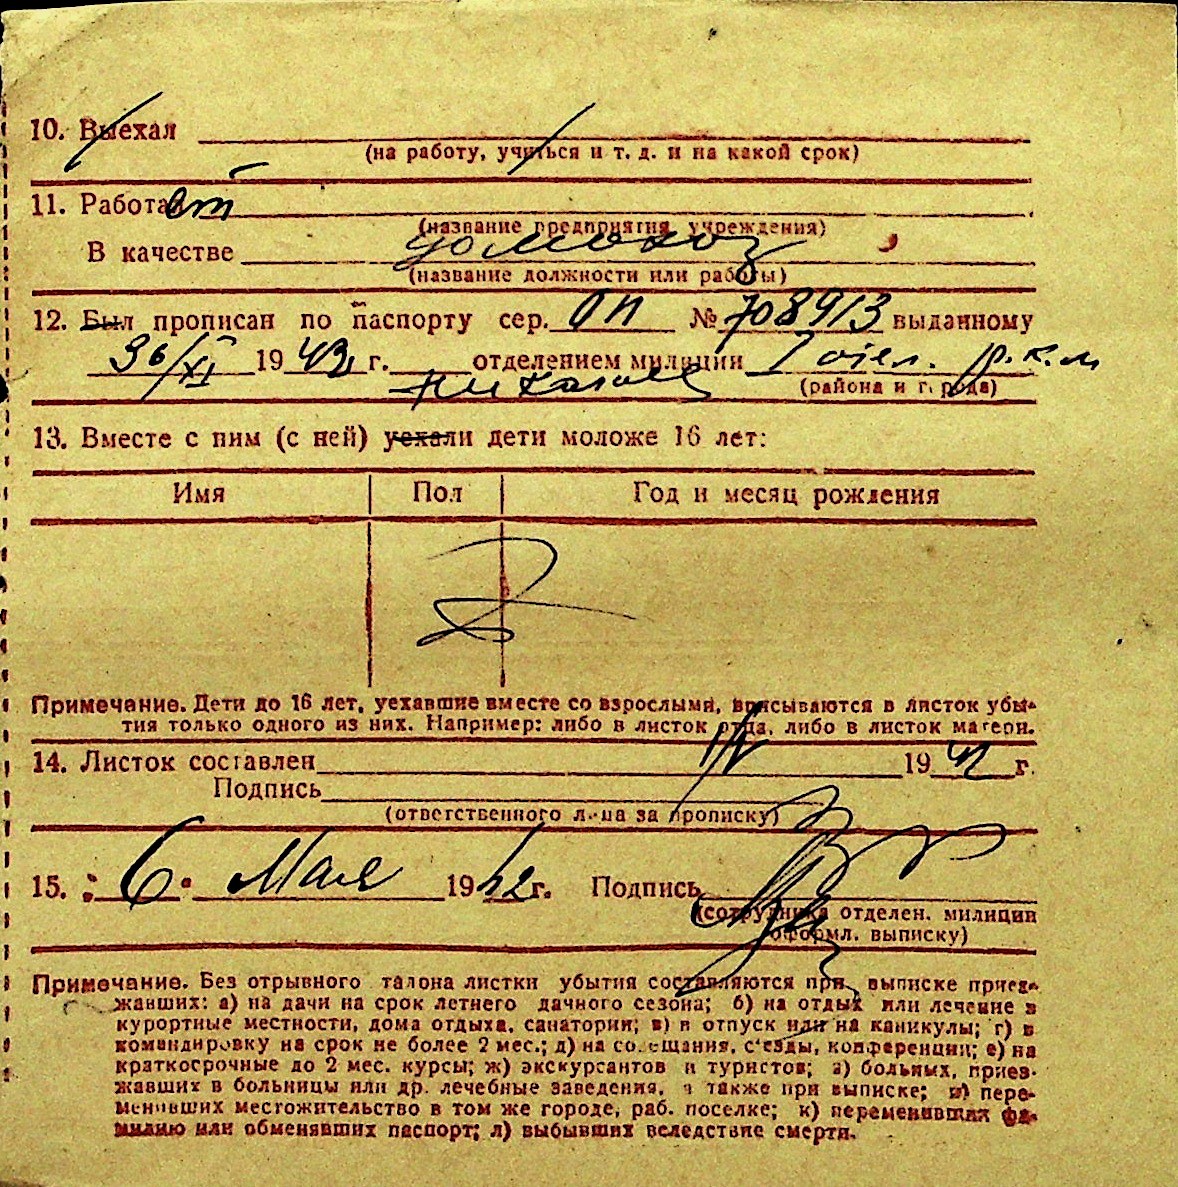 10. Выехал
(на работу, учиться и т. д. и на какой срок)
11. Работает
(название предприятия, учреждения)
В качестве домохоз
(название должности или работы)
12. Был прописан по паспорту сер. ОП № 708913 выданному
30/XI 19 г. отделением милиции 7 отел. р.к.м
(района и города)
13. Вместе с ним (с ней) уехали дети моложе 16 лет:
Имя Пол Год и месяц рождения
Примечание. Дети до 16 лет, уехавшие вместе со взрослыми, вписываются в листок убы-
тия только одного из них. Например: либо в листок отца, либо в листок матери.
14. Листок составлен 19 г.
Подпись
(ответственного лица за прописку)
15. „ 6 " Мая 1942 г. Подпись
(сотрудника отделен. милиции
оформл. выписку)
Примечание. Без отрывного талона листки убытия составляются при выписке приез-
жавших: а) на дачи на срок летнего дачного сезона; б) на отдых или лечение в
курортные местности, дома отдыха, санатории; в) в отпуск или на каникулы; г) в
командировку на срок не более 2 мес.; д) на совещания, с'езды, конференции; е) на
краткосрочные до 2 мес. курсы; ж) экскурсантов и туристов; з) больных, приез-
жавших в больницы или др. лечебные заведения, а также при выписке; и) пере-
менивших местожительство в том же городе, раб. поселке; к) переменивших фа-
милию или обменявших паспорт; л) выбывших вследствие смерти.